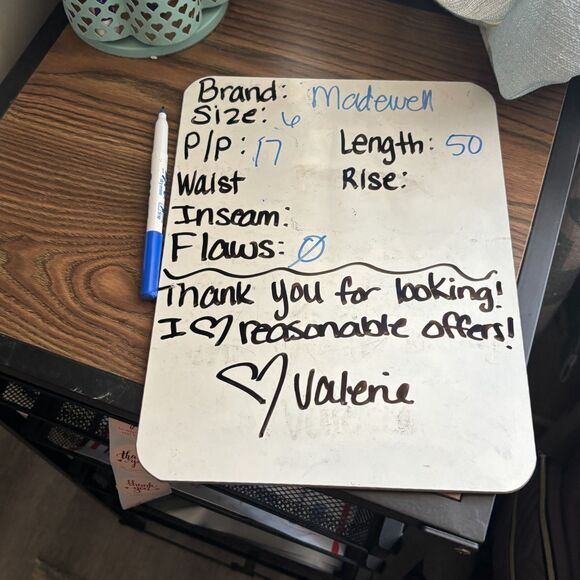 Brand: Madewell
Size: 6
P/P: 17 Length: 50
Waist Rise:
Inseam:
Flaws: Ø
Thank you for looking!
I ♡ reasonable offers!
♡ Valerie
thank you